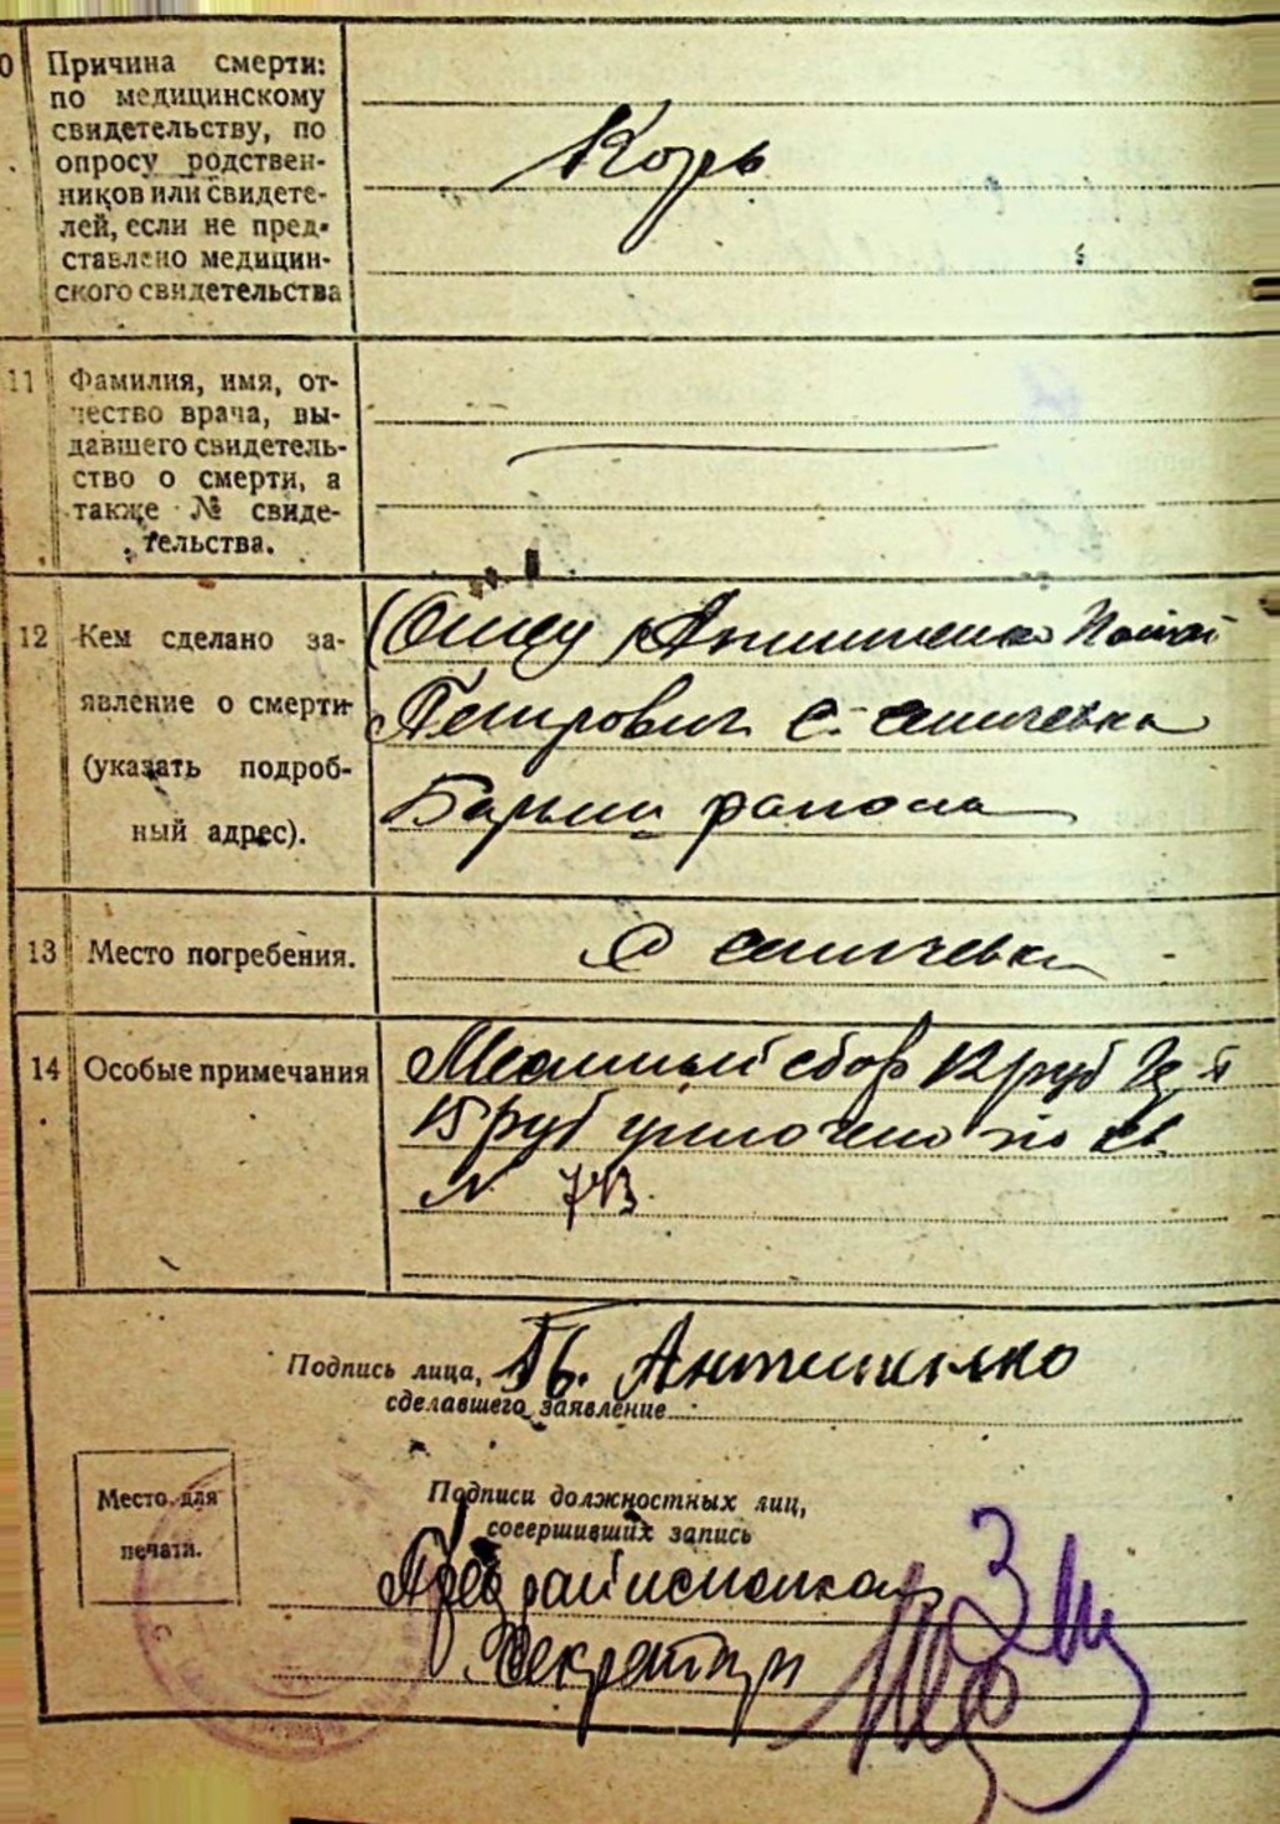 0 Причина смерти:
по медицинскому
свидетельству, по
опросу родствен-
ников или свидете-
лей, если не пред-
ставлено медицин-
ского свидетельства
Корь
11 Фамилия, имя, от-
чество врача, вы-
давшего свидетель-
ство о смерти, а
также № свиде-
тельства.
12 Кем сделано за-
явление о смерти
(указать подроб-
ный адрес).
Петрович с.
района
13 Место погребения.
С
14 Особые примечания
Местный сбор 12 руб
15 руб уплочено по кв.
N 743
Подпись лица,
сделавшего заявление
Место для
печати.
Подписи должностных лиц,
совершивших запись
Пред райисполкома
Секретарь